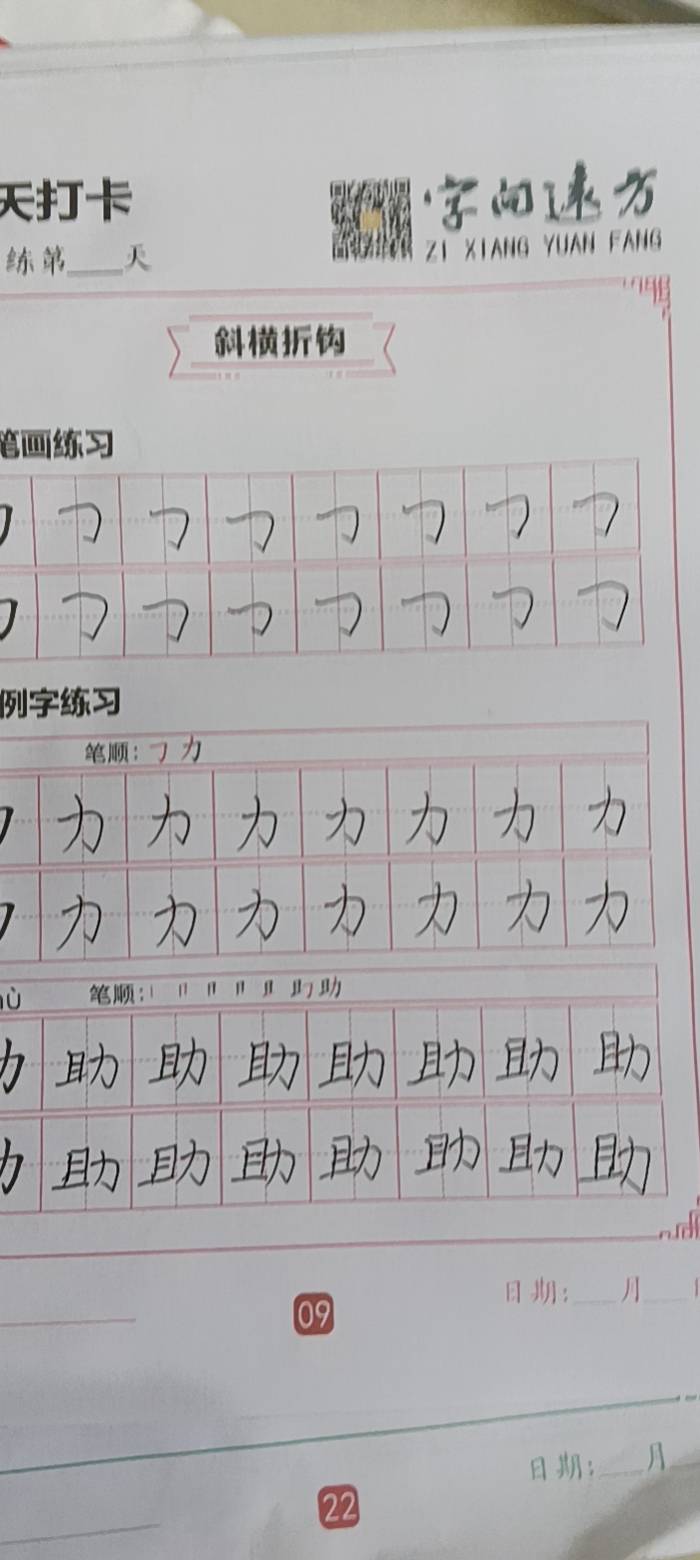 天打卡
字向远方
练第____天
ZI XIANG YUAN FANG
斜横折钩
笔画练习
例字练习
笔顺：㇆ 力
力 力 力 力 力 力 力
力 力 力 力 力 力 力
笔顺：
助 助 助 助 助 助 助
助 助 助 助 助 助 助
09
日期：____月____
日期：____月
22